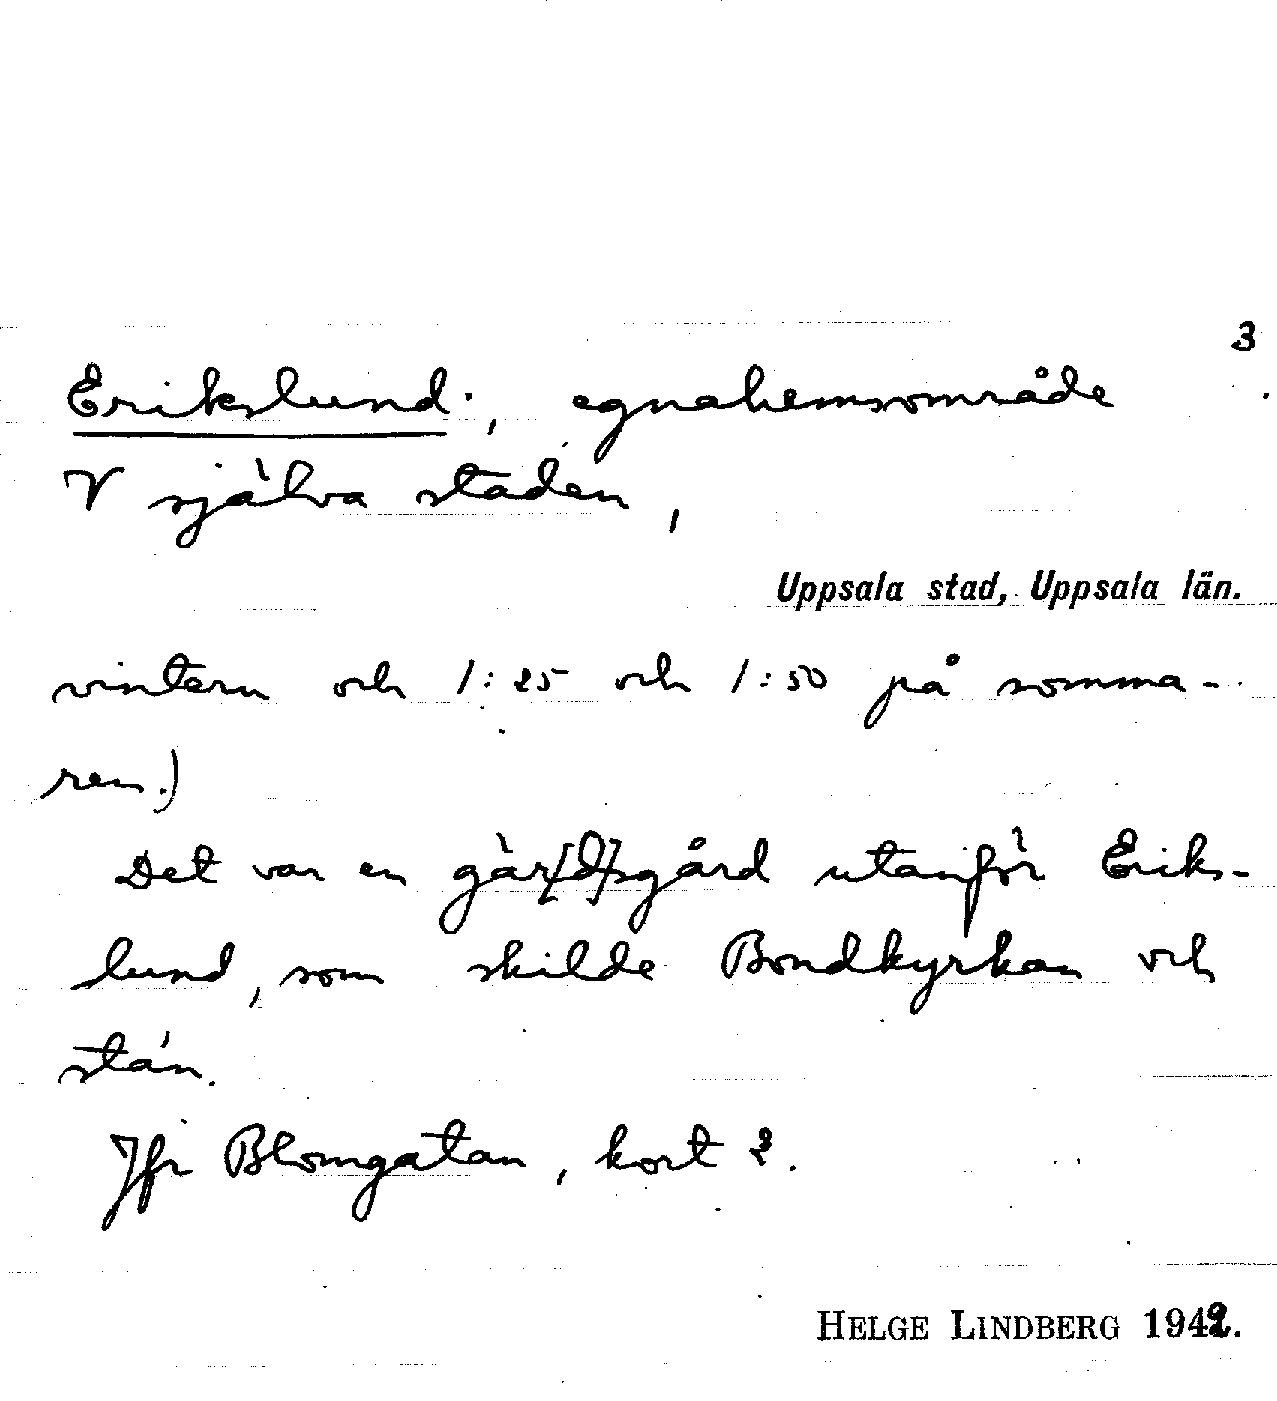 3
Erikslund, egnahemsområde
V själva staden,
Uppsala stad, Uppsala län.
vintern och 1:25 och 1:50 på somma-
ren.)
Det var en gär[d]sgård utanför Eriks-
lund, som skilde Bondkyrkan och
stán.
Jfr Blomgatan, kort 2.
HELGE LINDBERG 1942.